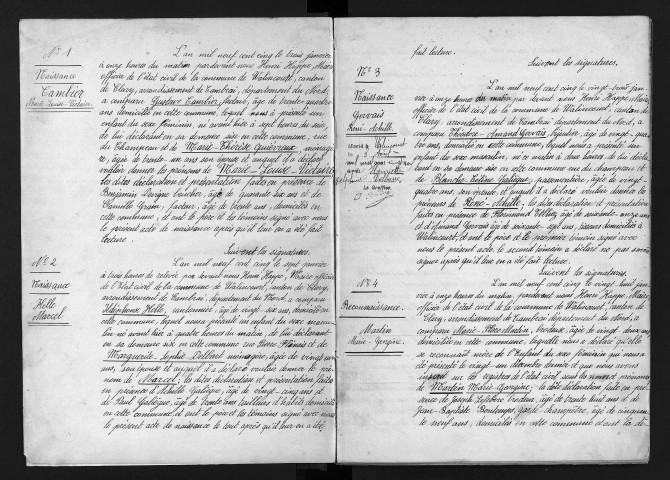 N° 1
Naissance
Cambier
Marie Louise Victoire
L'an mil neuf cent cinq le trois janvier
à onze heures du matin par devant nous Henri Happe Maire
officier de l'état civil de la commune de Walincourt, canton
de Clary, arrondissement de Cambrai, département du Nord,
a comparu Gustave Cambier, facteur, âgé de trente-quatre
ans domicilié en cette commune, lequel nous a présenté un
enfant du sexe féminin, né avant hier à sept heures du soir
de lui déclarant en sa demeure sise en cette commune, rue
du Changeau et de Marie-Thérèse Quiévreux, ménagè-
re, âgée de trente un ans son épouse et auquel il a déclaré
vouloir donner les prénoms de Marie-Louise-Victoire
les dites déclaration et présentation faites en présence de
Benjamin boucher, âgé de quarante six ans et de
facteur, âgé de trente ans, domiciliés en
cette commune, et ont le père et les témoins signé avec nous
le présent acte de naissance après qu'il leur en a été fait
lecture.
Suivent les signatures.
N° 2
Naissance
Helle
Marcel
L'an mil neuf cent cinq le sept janvier
à trois heures de relevée par devant nous Henri Happe, Maire officier
de l'état civil de la commune de Walincourt, canton de Clary,
arrondissement de Cambrai, département du Nord, a comparu
Ildephonse Helle, cantonnier, âgé de vingt-six ans, domicilié en
cette commune, lequel nous a présenté un enfant du sexe mascu-
lin né avant hier à quatre heures du matin, de lui déclarant
en sa demeure sise en cette commune rue et de
Marguerite Sophie Delbart ménagère, âgée de vingt
ans, son épouse et auquel il a déclaré vouloir donner le pré-
nom de Marcel; les dites déclaration et présentation faites
en présence d'Achille âgé de vingt-cinq ans et
de Paul âgé de trente ans, tailleurs d'habits, domiciliés
en cette commune, et ont le père et les témoins signé avec nous
le présent acte de naissance le tout après qu'il leur en a été
fait lecture.
Suivent les signatures.
N° 3
Naissance
Gervais
René-Achille
L'an mil neuf cent cinq le vingt-
vier à onze heures du matin par devant nous Henri Happe Maire
officier de l'état civil de la commune de Walincourt, canton de
Clary, arrondissement de Cambrai département du Nord, a
comparu Armand Gervais, âgé de vingt-qua-
tre ans, domicilié en cette commune, lequel nous a présenté un
enfant du sexe masculin, né ce matin à deux heures de lui décla-
rant en sa demeure sise en cette commune rue du et
de Blanche âgée de vingt-
quatre ans, son épouse et auquel il a déclaré vouloir donner les
prénoms de René-Achille, les dites déclaration et présentation
faites en présence de âgé de soixante-onze ans
et d'Armand Gervais âgé de soixante-sept ans, domiciliés à
Walincourt, et ont le père et le premier témoin signé avec nous
le présent acte, le second témoin a déclaré ne pas savoir
signer après qu'il leur en a été fait lecture.
Suivent les signatures.
N° 4
Reconnaissance
Martin
Marie-Georgine
L'an mil neuf cent cinq le vingt-huit jan-
vier à onze heures du matin, pardevant nous Henri Happe, maire
officier de l'état civil de la commune de Walincourt, canton de
Clary, arrondissement de Cambrai département du Nord, a
comparu Marie Martin, brodeuse, âgée de vingt-deux ans
domiciliée en cette commune, laquelle nous a déclaré qu'elle
se reconnaît mère de l'Enfant du sexe féminin qui nous a
été présenté le vingt-un décembre dernier et que nous avons
inscrit sur les registres de l'état civil sous les nom et prénoms
de Martin Marie Georgine; la dite déclaration faite en pré-
sence de Joseph Lefebvre brodeur, âgé de trente huit ans et de
Jean-Baptiste garde champêtre, âgé de cinquan-
te neuf ans, domiciliés en cette commune et ont la dé-